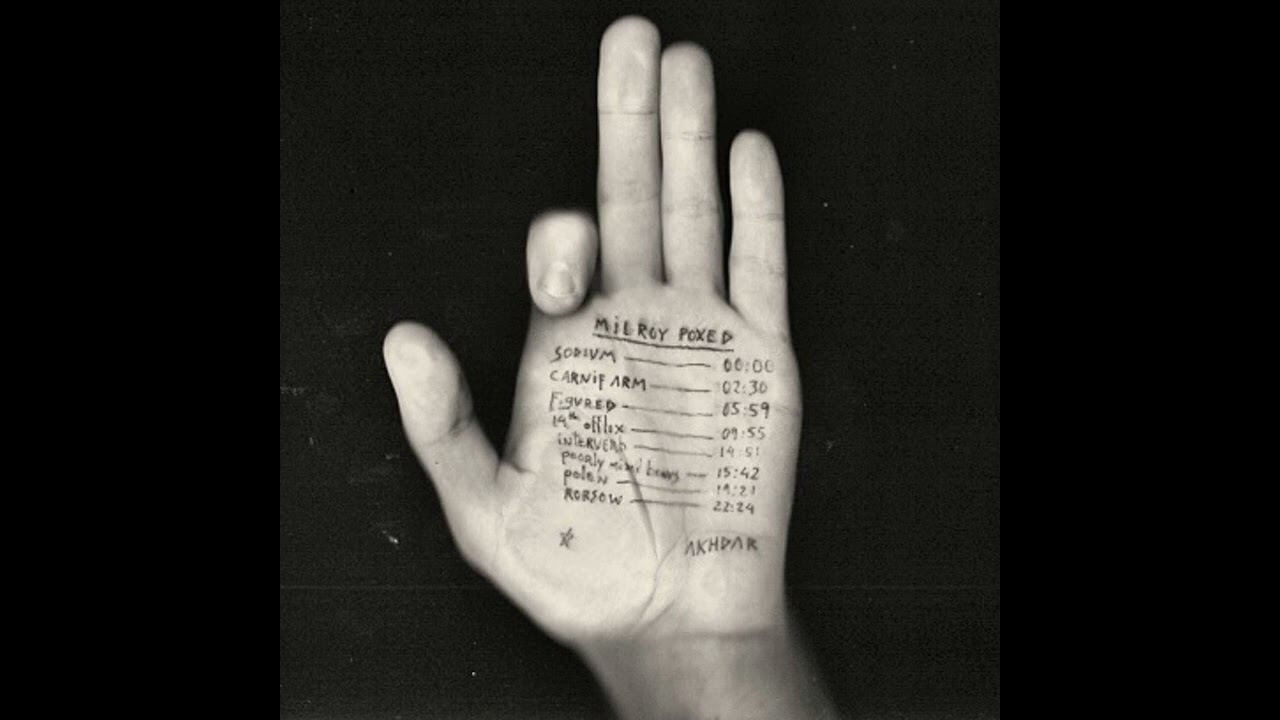 MiLROY POXED
SODIUM 00:00
CARNiFARM 02:30
FigURED 05:59
19th 09:55
iNTERVERB 14:51
poorly 15:42
polen 19:21
RORSOW 22:24
AKHDAR